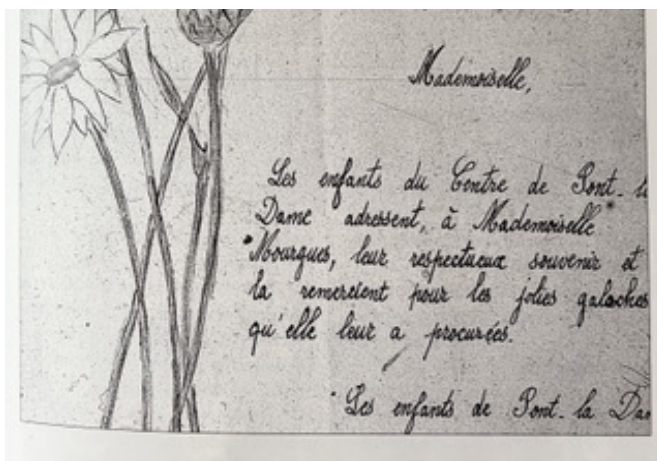 Mademoiselle,
Les enfants du Centre de Pont-
Dame adressent, à Mademoiselle
Mourgues, leur respectueux souvenir et
la remercient pour les jolies galoches
qu'elle leur a procurées.
Les enfants de Pont-la